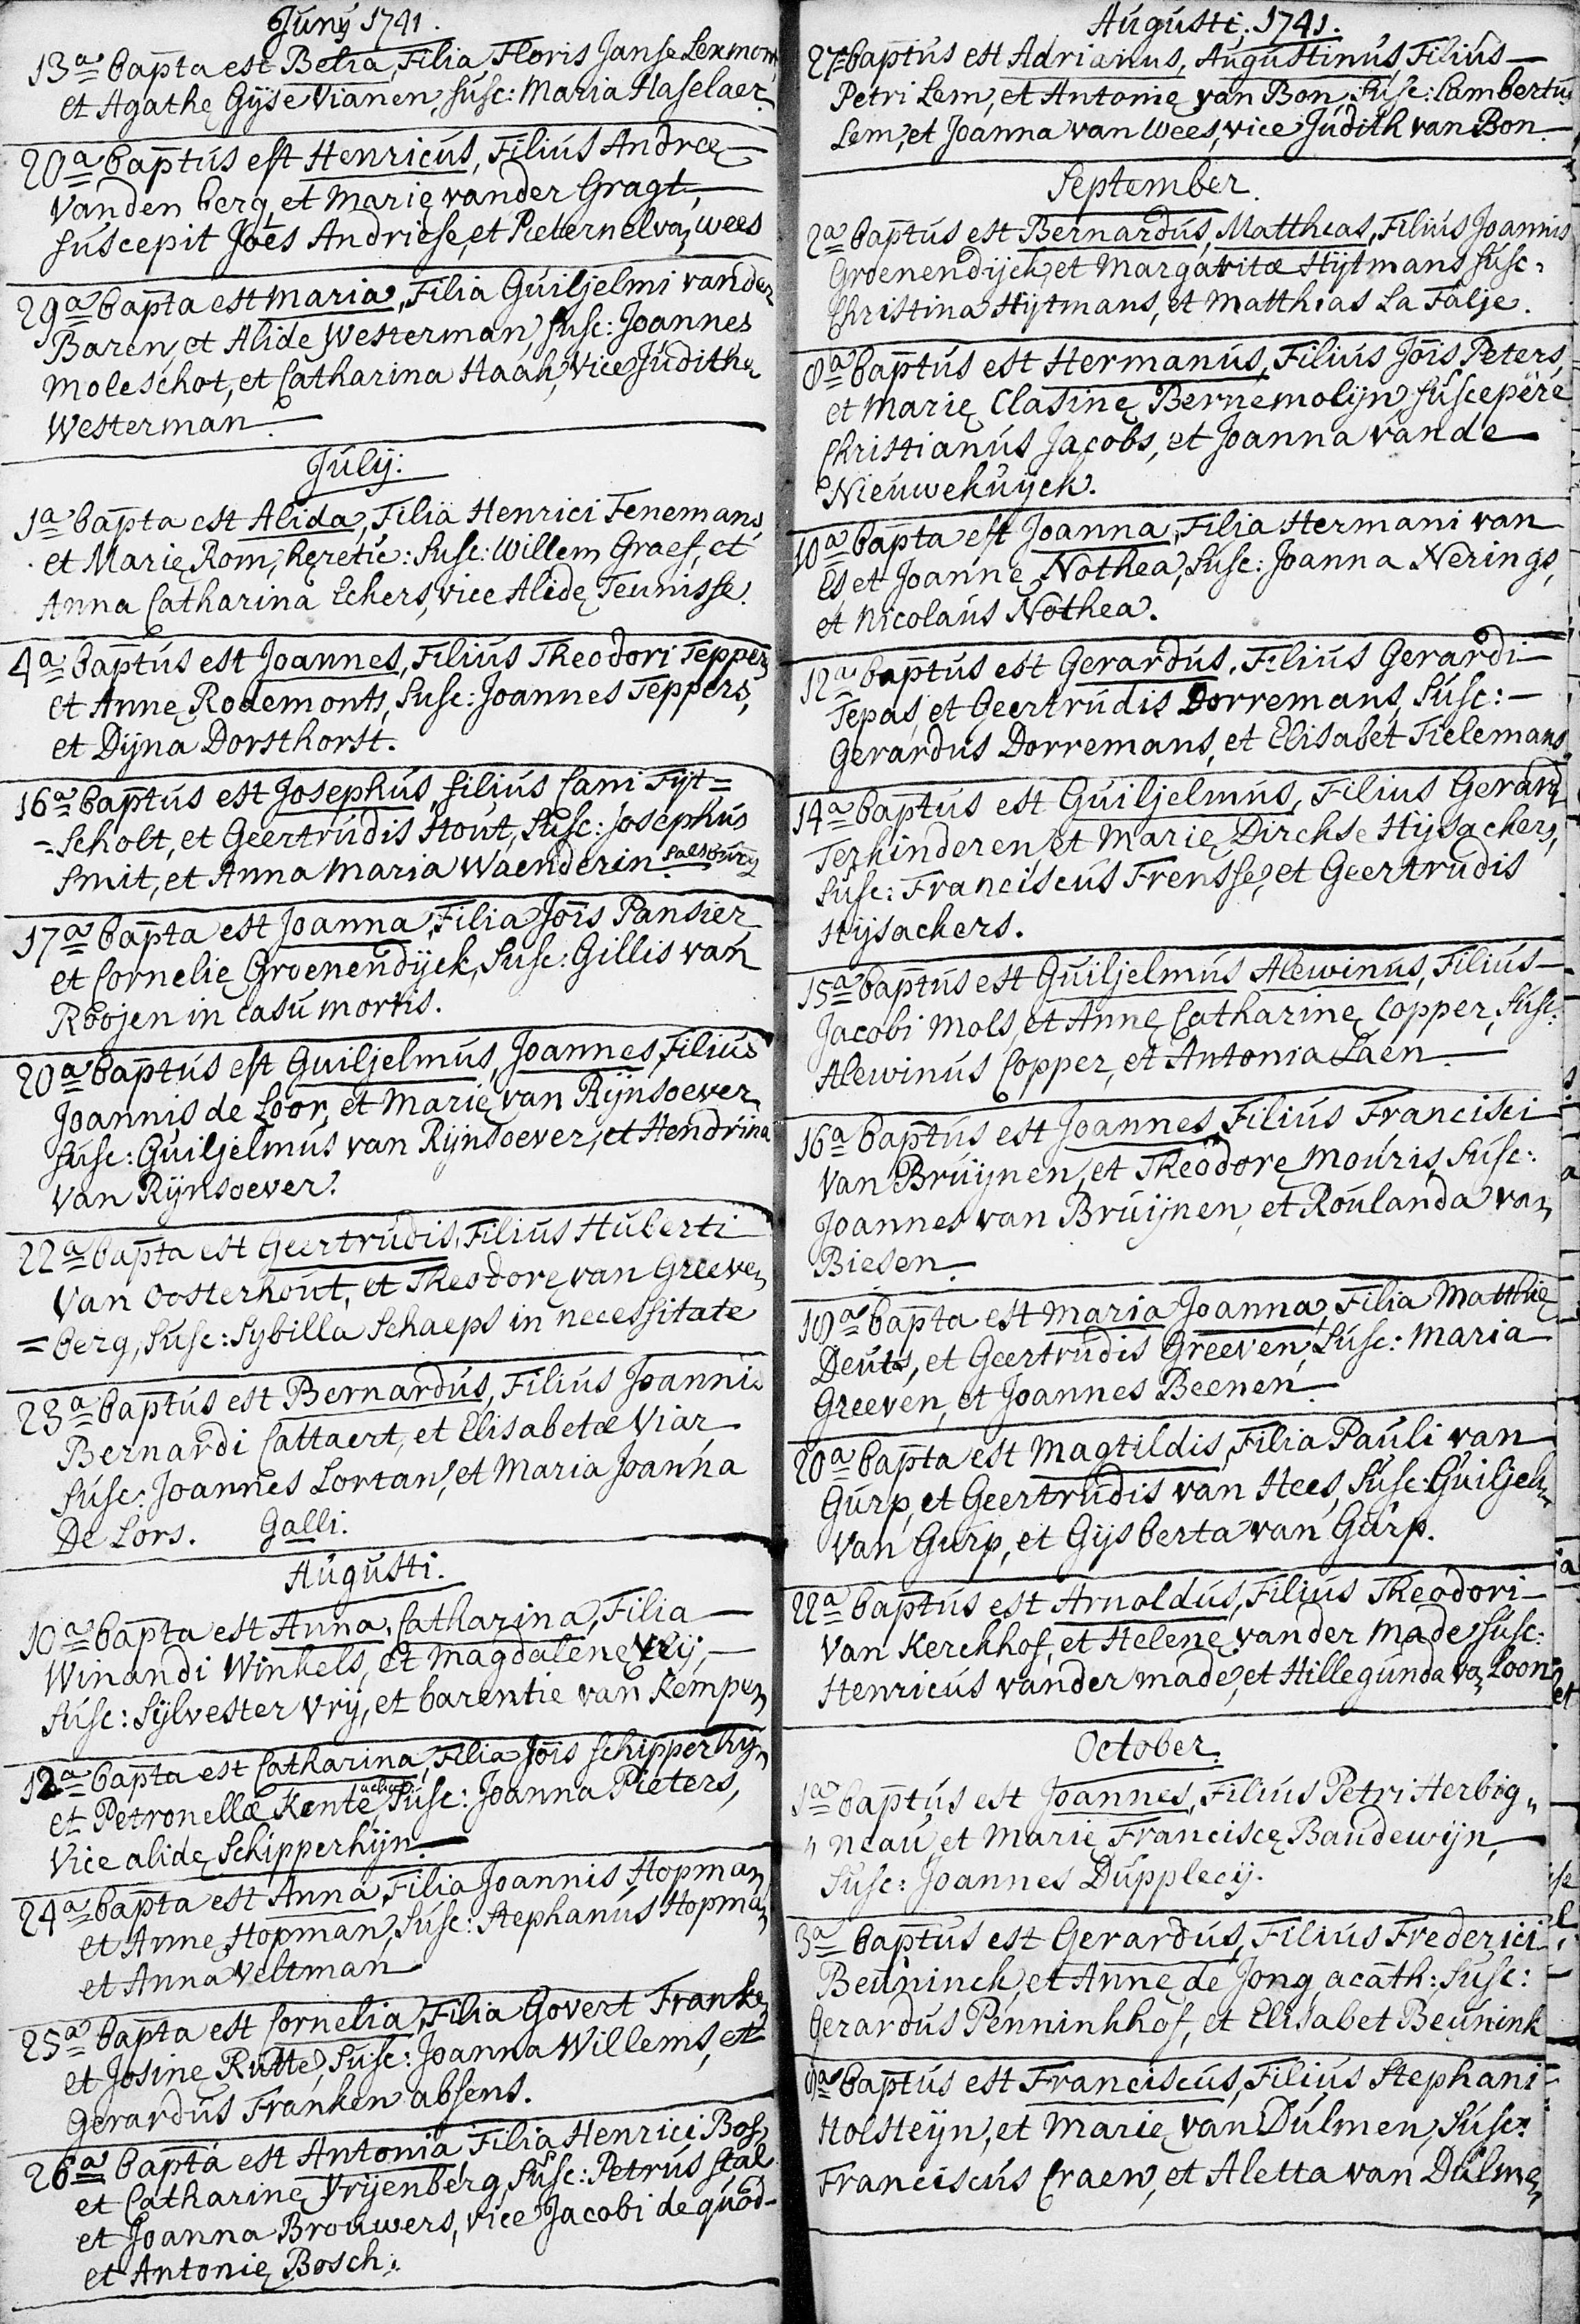 Junÿ 1741.
13a bapta est Betia, Filia Floris Janse Lexmont
et Agathę Gijse Vianen, susc: Maria Haselaer
20a baptus est Henricus, Filius Andreę
Vanden berg, et Marię vander Gragt,
suscepit Joēs Andriese, et Pieternel van wees
29a bapta est Maria, Filia Guiljelmi vander
Baren, et Alide Westerman, susc: Joannes
Moleschot, et Catharina Haak, vice Judithę
Westerman.
July:
1a bapta est Alida, Filia Henrici Fenemans
et Marię Rom, hęretic: susc: Willem Graef, et
Anna Catharina Eckers, vice Alidę Teunisse.
4a baptus est Joannes, Filius Theodori Teppers
et Annę Rodemonts, susc: Joannes Teppers,
et Dijna Dorsthorst.
16a baptus est Josephus, filius Cani Fijt=
=scholt, et Geertrudis Hout, susc: Josephus
Smit, et Anna Maria Waenderin. Salsburg
17a bapta est Joanna, Filia Jois Pansier
et Cornelię Groenendijck, susc: Gillis van
Roojen in casu mortis.
20a baptus est Guiljelmus, Joannes, Filius
Joannis de Loor, et Marię van Rijnsoever
susc: Guiljelmus van Rijnsoever, et Hendrina
van Rijnsoever.
22a bapta est Geertrudis, Filius Huberti
Van Oosterhout, et Theodorę van Greeven
=berg, susc: Sybilla Schaeps in necessitate
23a baptus est Bernardus, Filius Joannis
Bernardi Cattaert, et Elisabetæ Viar
susc: Joannes Lortan, et Maria Joanna
De Lors. Galli.
Augusti.
10a bapta est Anna, Catharina, Filia
Winandi Winkels, et Magdalenę Vrij,
susc: Sijlvester Vrij, et barentie van Kempen
12a bapta est Catharina, Filia Jois Schipperhyn
et Petronellæ Kente, acath: susc: Joanna Pieters,
Vice alidę Schipperhijn.
24a bapta est Anna, Filia Joannis Hopman
et Annę Hopman, susc: Stephanus Hopman
et Anna Veltman
25a bapta est Cornelia, Filia Govert Franken
et Josinę Rutte, susc: Joanna Willems, et
Gerardus Franken absens.
26a bapta est Antonia, Filia Henrici Bos,
et Catharinę Vrijenberg, susc: Petrus Stal
et Joanna Brouwers, vice Jacobi de quad
et Antonię Bosch.
Augusti. 1741.
27a baptus est Adrianus, Augustinus, Filius
Petri Lem, et Antonię van Bon, susc: Lambertus
Lem, et Joanna van Wees, vice Judith van Bon
September.
2a baptus est Bernardus, Mattheas, Filius Joannis
Groenendijck, et Margaritæ Hijtmans susc:
Christina Hijtmans, et Matthias La Falje.
8a baptus est Hermanus, Filius Jois Peters,
et Marię Clasinę Bernemolijn, suscepere
Christianus Jacobs, et Joanna vande
Nieuwekuijck.
10a bapta est Joanna, Filia Hermani van
Es et Joannę Nothea, susc: Joanna Nerings,
et Nicolaus Nothea.
12a baptus est Gerardus, Filius Gerardi
Tepas, et Geertrudis Dorremans, susc:
Gerardus Dorremans, et Elisabet Tielemans
14a baptus est Guiljelmus, Filius Gerardi
Terkinderen, et Marię Dirckse Hijsackers,
susc: Franciscus Frensse, et Geertrudis
Hijsackers.
15a baptus est Guiljelmus Alewinus, Filius
Jacobi Mols, et Annę Catharinę Copper, susc:
Alewinus Copper, et Antonia Laen
16a baptus est Joannes, Filius Francisci
Van Bruijnen, et Theodorę Mouris, susc:
Joannes van Bruijnen, et Roulanda van
Biesen.
19a bapta est Maria Joanna, Filia Matthię
Deuts, et Geertrudis Greeven, susc: Maria
Greeven, et Joannes Beenen
20a bapta est Magtildis, Filia Pauli van
Gurp, et Geertrudis van Hees, susc: Guiljel:
Van Gurp, et Gijsberta van Gurp.
22a baptus est Arnoldus, Filius Theodori
Van Kerckhof, et Helenę vander Made, susc:
Henricus vander made, et Hillegunda van Loon
October.
1a baptus est Joannes, Filius Petri Herbig„
„neau, et Marię Franciscę Baudewijn,
susc: Joannes Dupplecij.
3a baptus est Gerardus, Filius Frederici
Beuninck, et Annę de Jong, acath: susc:
Gerardus Penninkhof, et Elisabet Beunink
9a baptus est Franciscus, Filius Stephani
Holsteijn, et Marię van Dulmen, susc:
Franciscus Craew, et Aletta van Dulmen